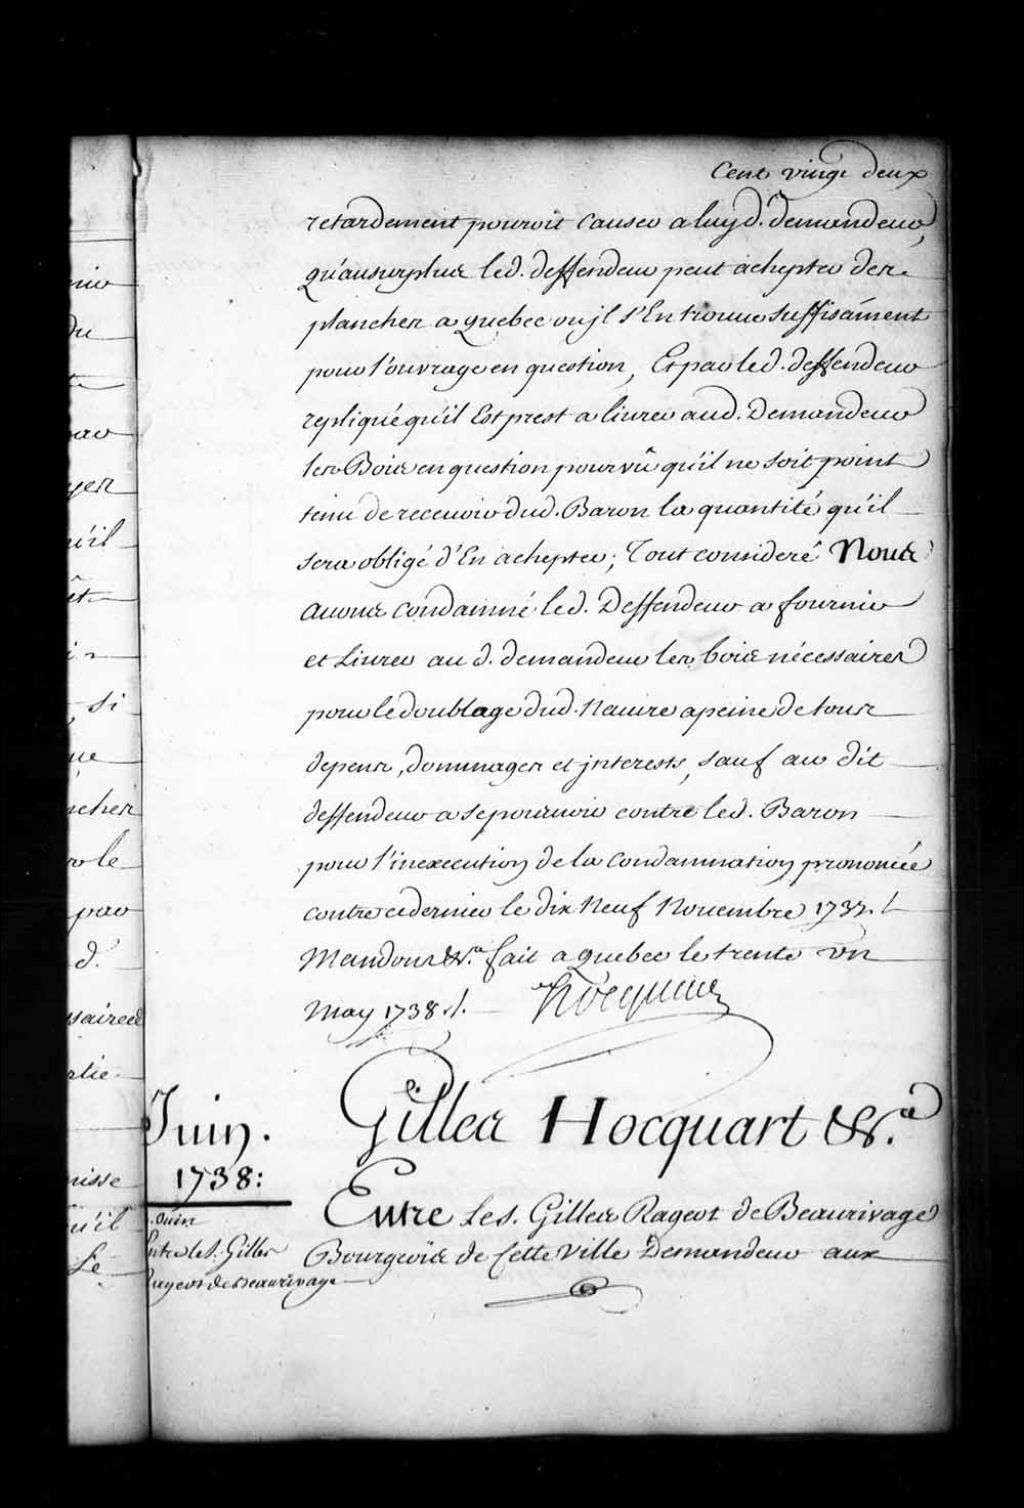 Cent vingt deux
retardement pourroit causer a luy d. demandeur,
qu'au surplus led. deffendeur peut achepter des
planches a quebec ou jl s'En trouve suffisâment
pour l'ouvrage en question, Et par led. deffendeur
repliqué qu'il Est prest a livrer aud. Demandeur
les Bois en question pourvû qu'il ne soit point
tenu de recevoir dud. Baron la quantité qu'il
sera obligé d'En achepter; Tout consideré Nous
avons condamné led. Deffendeur a fournir
et Livrer au d. demandeur les bois nécessaires
pour le doublage dud. Navire a peine de tous
depens, dommages et jnterests, sauf au dit
deffendeur a se pourvoir contre led. Baron
pour l'inexecution de la condamnation prononcée
contre ce dernier le dix Neuf Novembre 1737. /.
Mandons &c.a fait a Quebec le trente un
May 1738 ./.
Hocquart
Gilles Hocquart &c.a
Juin.
1738:
Entre Le S. Gilles Rageot de Beaurivage
Bourgeois de cette Ville Demandeur aux
. Juin
Entre le S. Gilles
Rageot de Beaurivage
nir
du
par
yer
u'il
êt
si
ue
nches
r le
par
d.
ssaires
rtie
nisse
u'il
Le